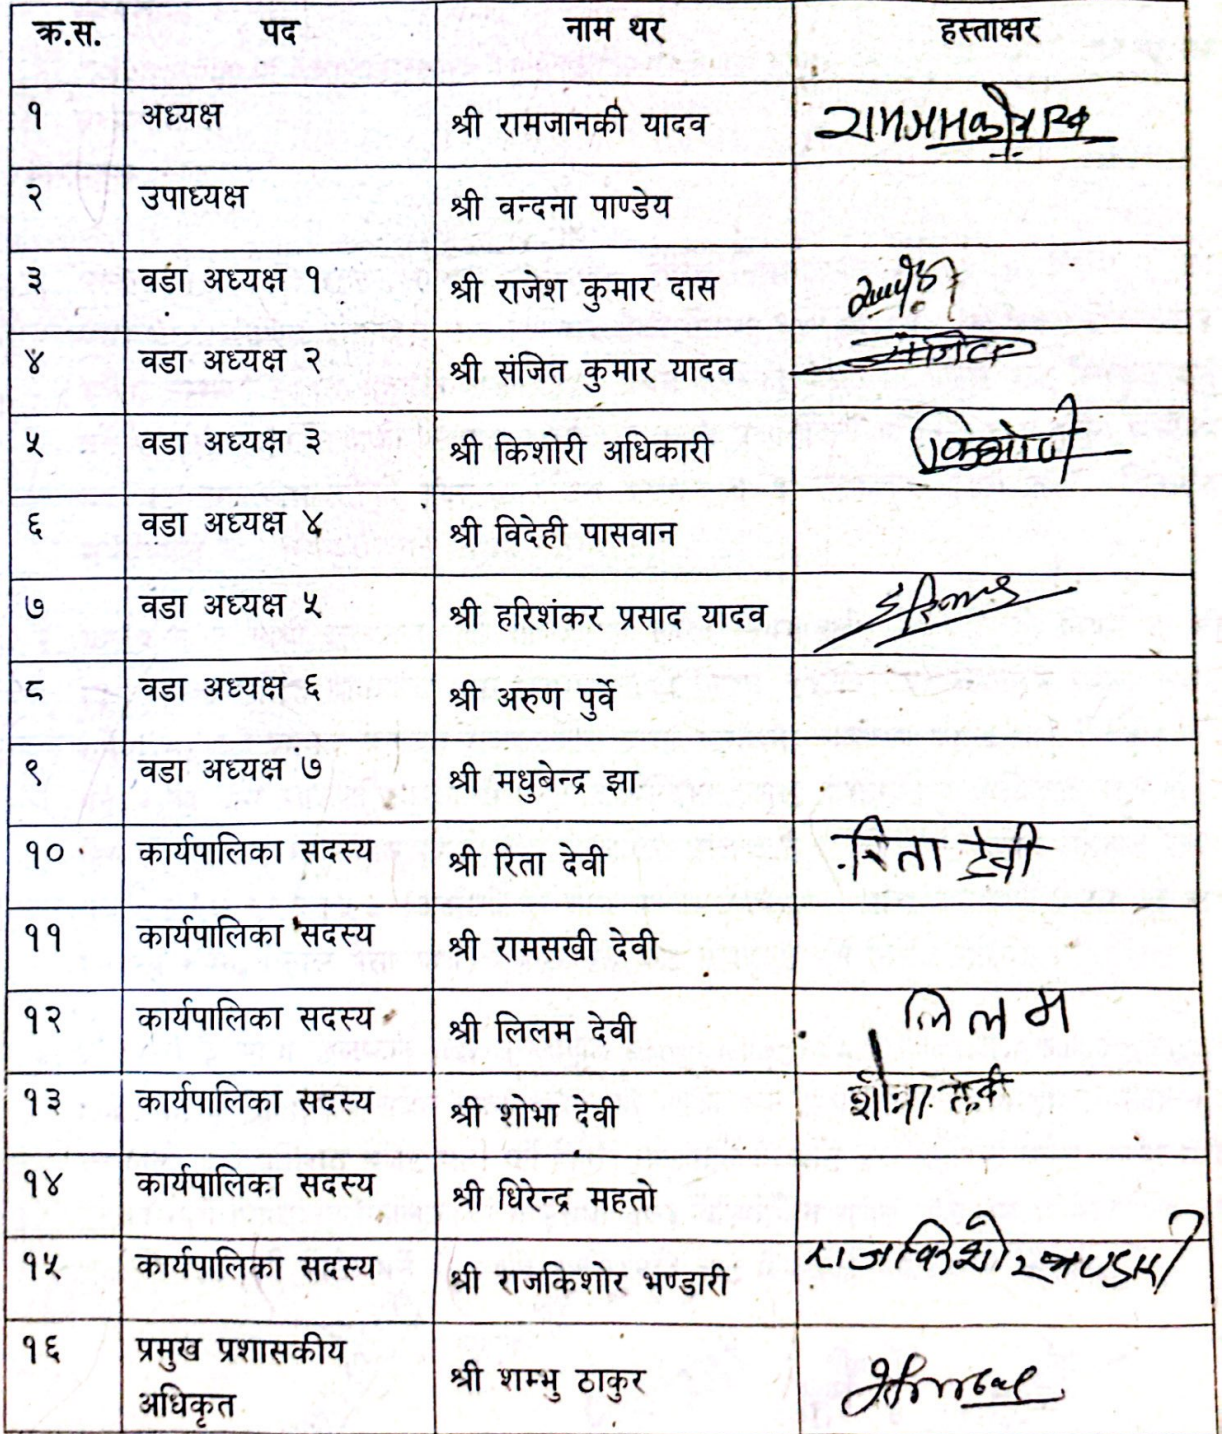 क्र.स. पद नाम थर हस्ताक्षर
१ अध्यक्ष श्री रामजानकी यादव
२ उपाध्यक्ष श्री वन्दना पाण्डेय
३ वडा अध्यक्ष १ श्री राजेश कुमार दास
४ वडा अध्यक्ष २ श्री संजित कुमार यादव
५ वडा अध्यक्ष ३ श्री किशोरी अधिकारी
६ वडा अध्यक्ष ४ श्री विदेही पासवान
७ वडा अध्यक्ष ५ श्री हरिशंकर प्रसाद यादव
८ वडा अध्यक्ष ६ श्री अरुण पुर्वे
९ वडा अध्यक्ष ७ श्री मधुबेन्द्र झा
१० कार्यपालिका सदस्य श्री रिता देवी रिता देवी
११ कार्यपालिका सदस्य श्री रामसखी देवी
१२ कार्यपालिका सदस्य श्री लिलम देवी लिलम
१३ कार्यपालिका सदस्य श्री शोभा देवी शोभा देवी
१४ कार्यपालिका सदस्य श्री धिरेन्द्र महतो
१५ कार्यपालिका सदस्य श्री राजकिशोर भण्डारी राजकिशोर भण्डारी
१६ प्रमुख प्रशासकीय श्री शम्भु ठाकुर
अधिकृत